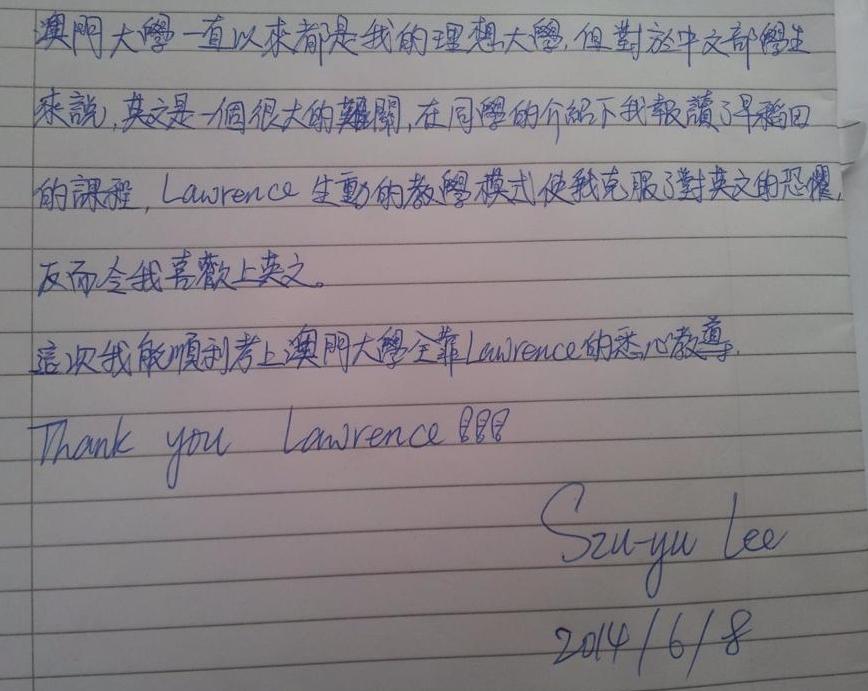 澳門大學一直以來都是我的理想大學,但對於中文部學生
來說,英文是一個很大的難關,在同學的介紹下我報讀了早稻田
的課程,Lawrence 生動的教學模式使我克服了對英文的恐懼,
反而令我喜歡上英文。
這次我能順利考上澳門大學全靠Lawrence的悉心教導.
Thank you Lawrence!!!
Szu-yu Lee
2014/6/8